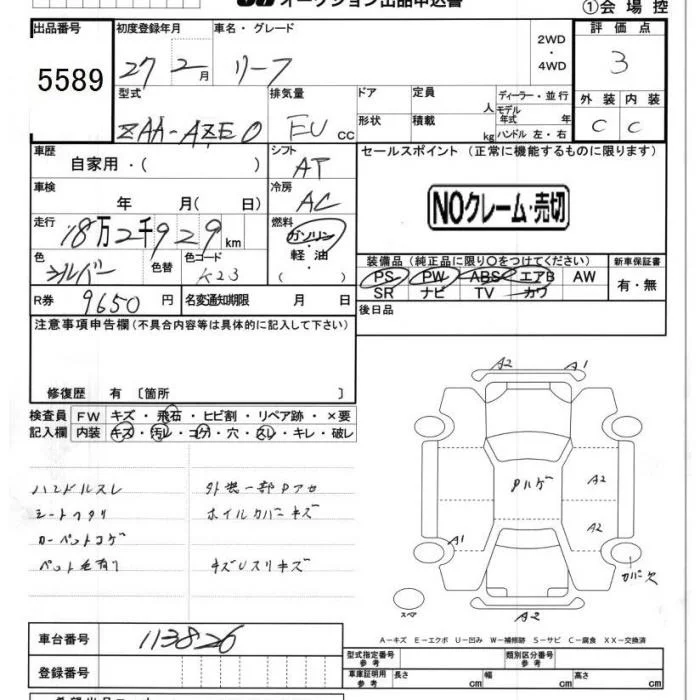 オークション出品申込書
①会場控
出品番号 初度登録年月 車名・グレード 2WD・4WD 評価点
5589 27 2月 リーフ 3
型式 排気量 ドア 定員 人 ディーラー・並行 外装 内装
ZAA-AZE0 EV cc 形状 積載 kg モデル年式 年 ハンドル 左・右 C C
車歴 シフト セールスポイント(正常に機能するものに限ります)
自家用・( ) AT
車検 冷房 NOクレーム・売切
年 月( 日) AC
走行 燃料
18万2千929km ガソリン・軽油・( )
色 色替 色コード 装備品(純正品に限り○をつけてください) 新車保証書
シルバー K23 PS PW ABS エアB AW 有・無
SR ナビ TV カワ
R券 9650円 名変通知期限 月 日 後日品
注意事項申告欄(不具合内容等は具体的に記入して下さい)
修復歴 有 〔箇所 〕
検査員 FW キズ・飛石・ヒビ割・リペア跡・×要
記入欄 内装 キズ・汚レ・コゲ・穴・スレ・キレ・破レ
ハンドルスレ 外装一部Pアセ
シートヘタリ ホイルカバーキズ
カーペットコゲ
ペット毛有り キズUスリキズ
A2 A1
Pハゲ A2
A2
A1
カバー欠
スペア A2
A-キズ E-エクボ U-凹み W-補修跡 S-サビ C-腐食 XX-交換済
車台番号 113826
型式指定番号 参考 類別区分番号 参考
登録番号 車庫証明用 参考 長さ cm 幅 cm 高さ cm